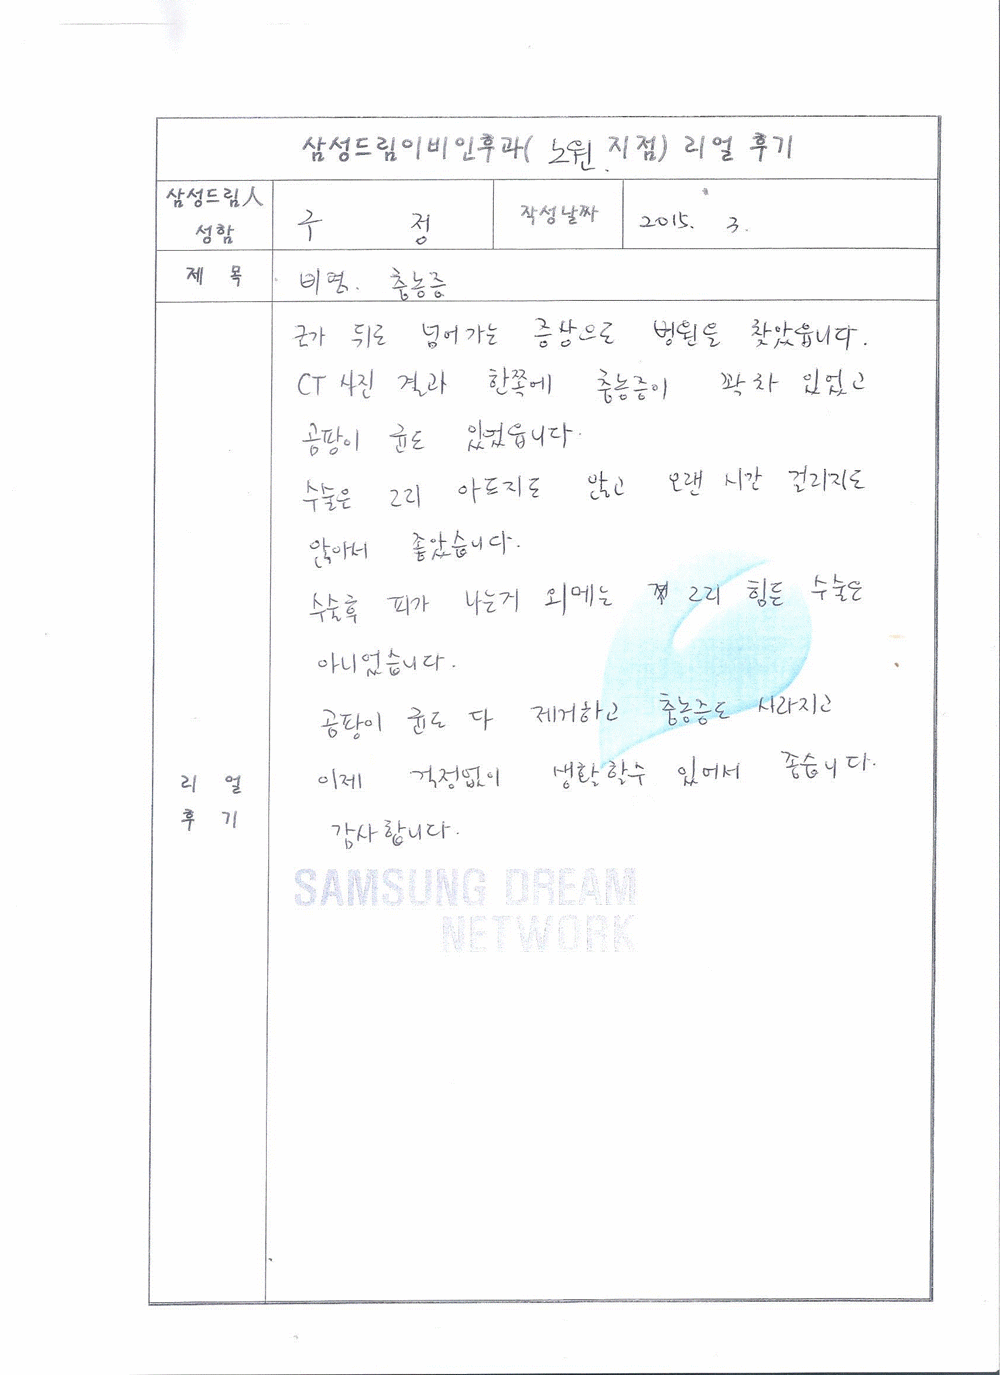 삼성드림이비인후과( 노원 지점) 리얼 후기
삼성드림人 성함
구 정
작성날짜
2015. 3.
제 목
비염. 축농증
코가 뒤로 넘어가는 증상으로 병원을 찾았읍니다.
CT 사진 결과 한쪽에 축농증이 꽉 차 있었고
곰팡이 균도 있었읍니다.
수술은 그리 아프지도 않고 오랜 시간 걸리지도
않아서 좋았습니다.
수술후 피가 나는거 외에는 그리 힘든 수술은
아니었습니다.
곰팡이 균도 다 제거하고 축농증도 사라지고
이제 걱정없이 생활할수 있어서 좋습니다.
감사합니다.
리 얼
후 기
SAMSUNG DREAM
NETWORK